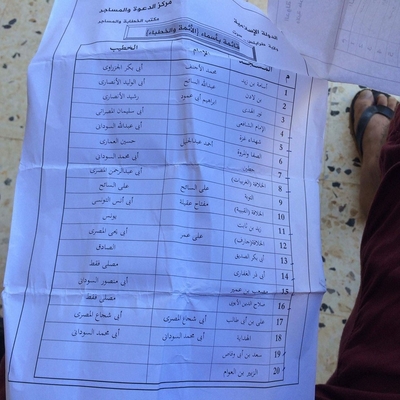 الدولة الإسلامية مركز الدعوة والمساجد
ولاية طرابلس مكتب الخطباء والمساجد
قائمة بأسماء (الأئمة والخطباء)
م المسجد الإمام الخطيب
1 أسامة بن زيد محمد الأحنف أبي بكر الحرراوي
2 بن ثابت عبدالله السائح أبي الوليد الأنصاري
3 نور الهدى ابراهيم أبي عمود رشيد الأنصاري
4 الإمام الشافعي أبي سليمان المصراتي
5 شهداء غزة أحمد عبدالجليل أبي عبدالله السوداني
6 الصفا والمروة حسين العماري
7 حطين أبي محمد السوداني
8 الخلافة (العربيات) أبي عبدالرحمن المصري
9 التوبة علي السائح علي السائح
10 الخلافة (القبيبة) مفتاح عقيلة أبي أنس التونسي
11 زيد بن ثابت يونس
12 الخلافة (جارف) علي عمر أبي يحيى المصري
13 أبي بكر الصديق الصادق
14 أبي ذر الغفاري مصلى فقط
15 مصعب بن عمير أبي منصور السوداني
16 صلاح الدين الأيوبي مصلى فقط
17 علي بن أبي طالب أبي شجاع المصري أبي شجاع المصري
18 الهداية أبي محمد السوداني أبي محمد السوداني
19 سعد بن أبي وقاص
20 الزبير بن العوام